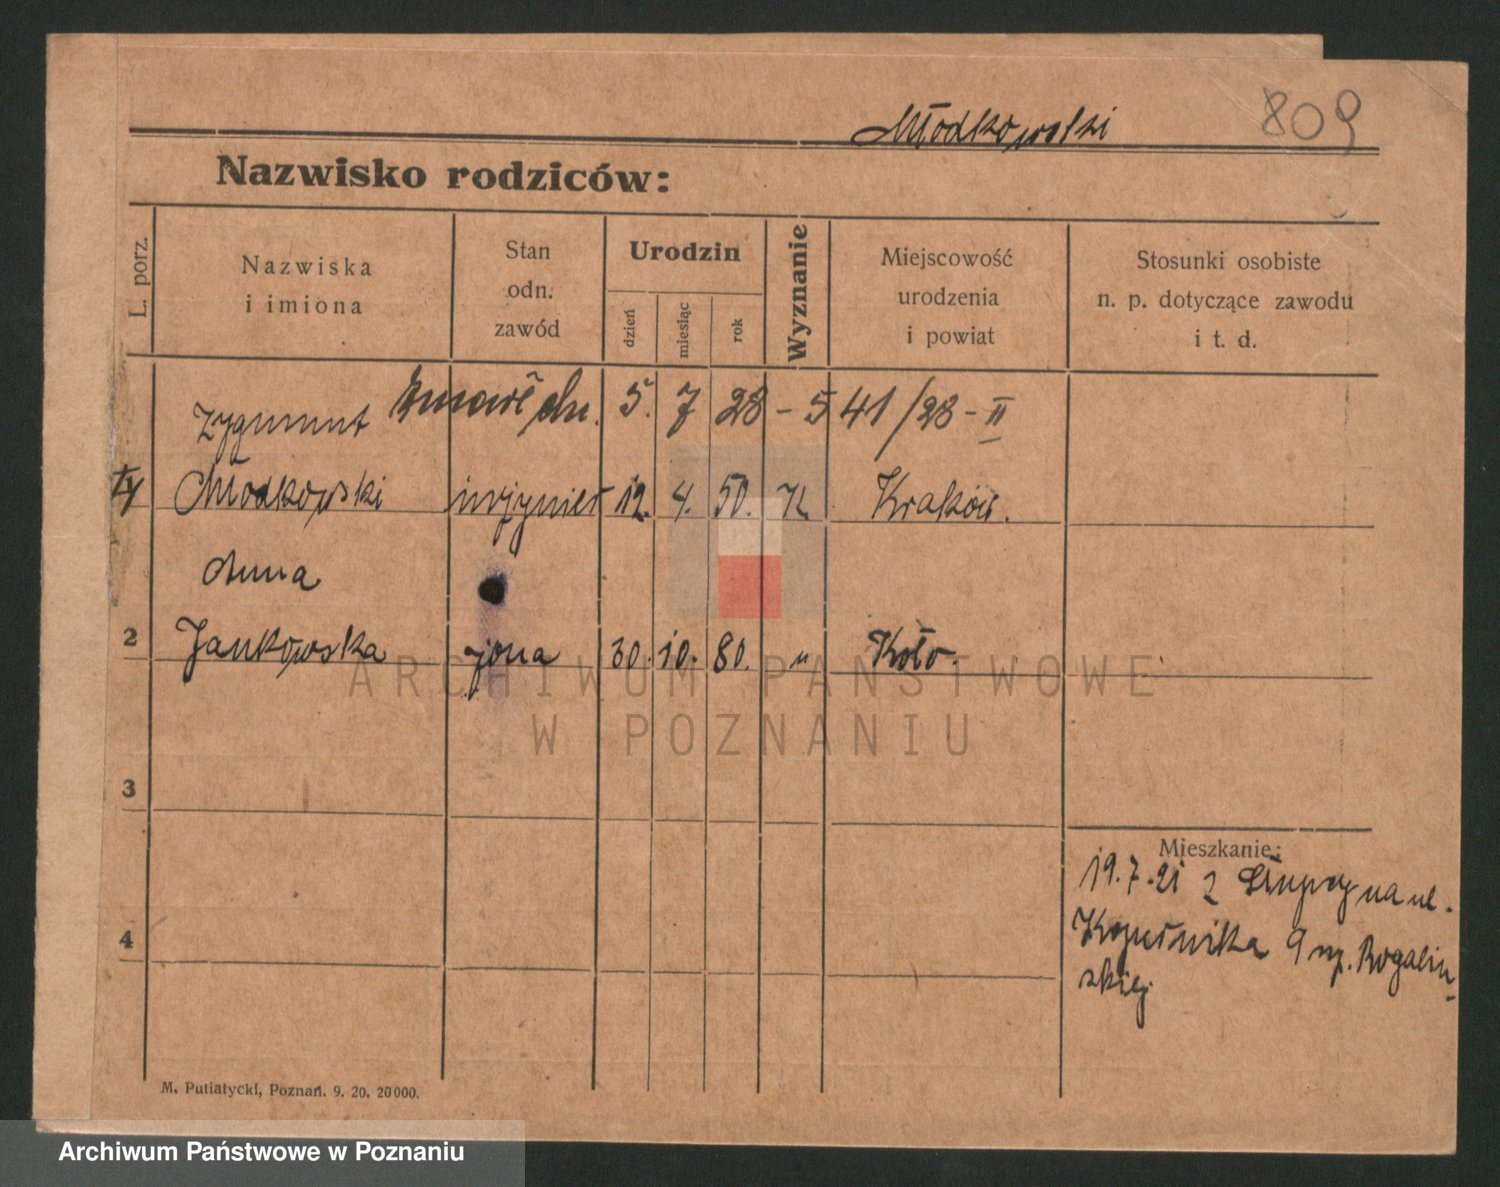 809
Młodkowski
Nazwisko rodziców:
L. porz.
Nazwiska
i imiona
Stan
odn.
zawód
Urodzin
dzień
miesiąc
rok
Wyznanie
Miejscowość
urodzenia
i powiat
Stosunki osobiste
n. p. dotyczące zawodu
i t. d.
Zygmunt 5. 7 28 - 541/28 - II
Młodkowski inżynier 12. 4. 50. K. Kraków.
Anna
2 Jankowska żona 30. 10. 80. " Koło.
3
4
Mieszkanie:
19.7.21 z Słupcy na ul.
Kopernika 9 np. Rogaliń-
skiej
M. Putiatycki, Poznań. 9. 20. 20000.
ARCHIWUM PAŃSTWOWE
W POZNANIU
Archiwum Państwowe w Poznaniu